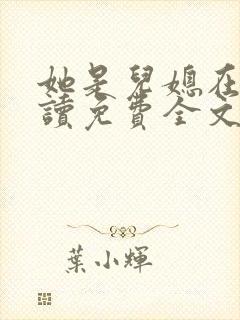 她是兒媳在
讀免費全文
葉小輝